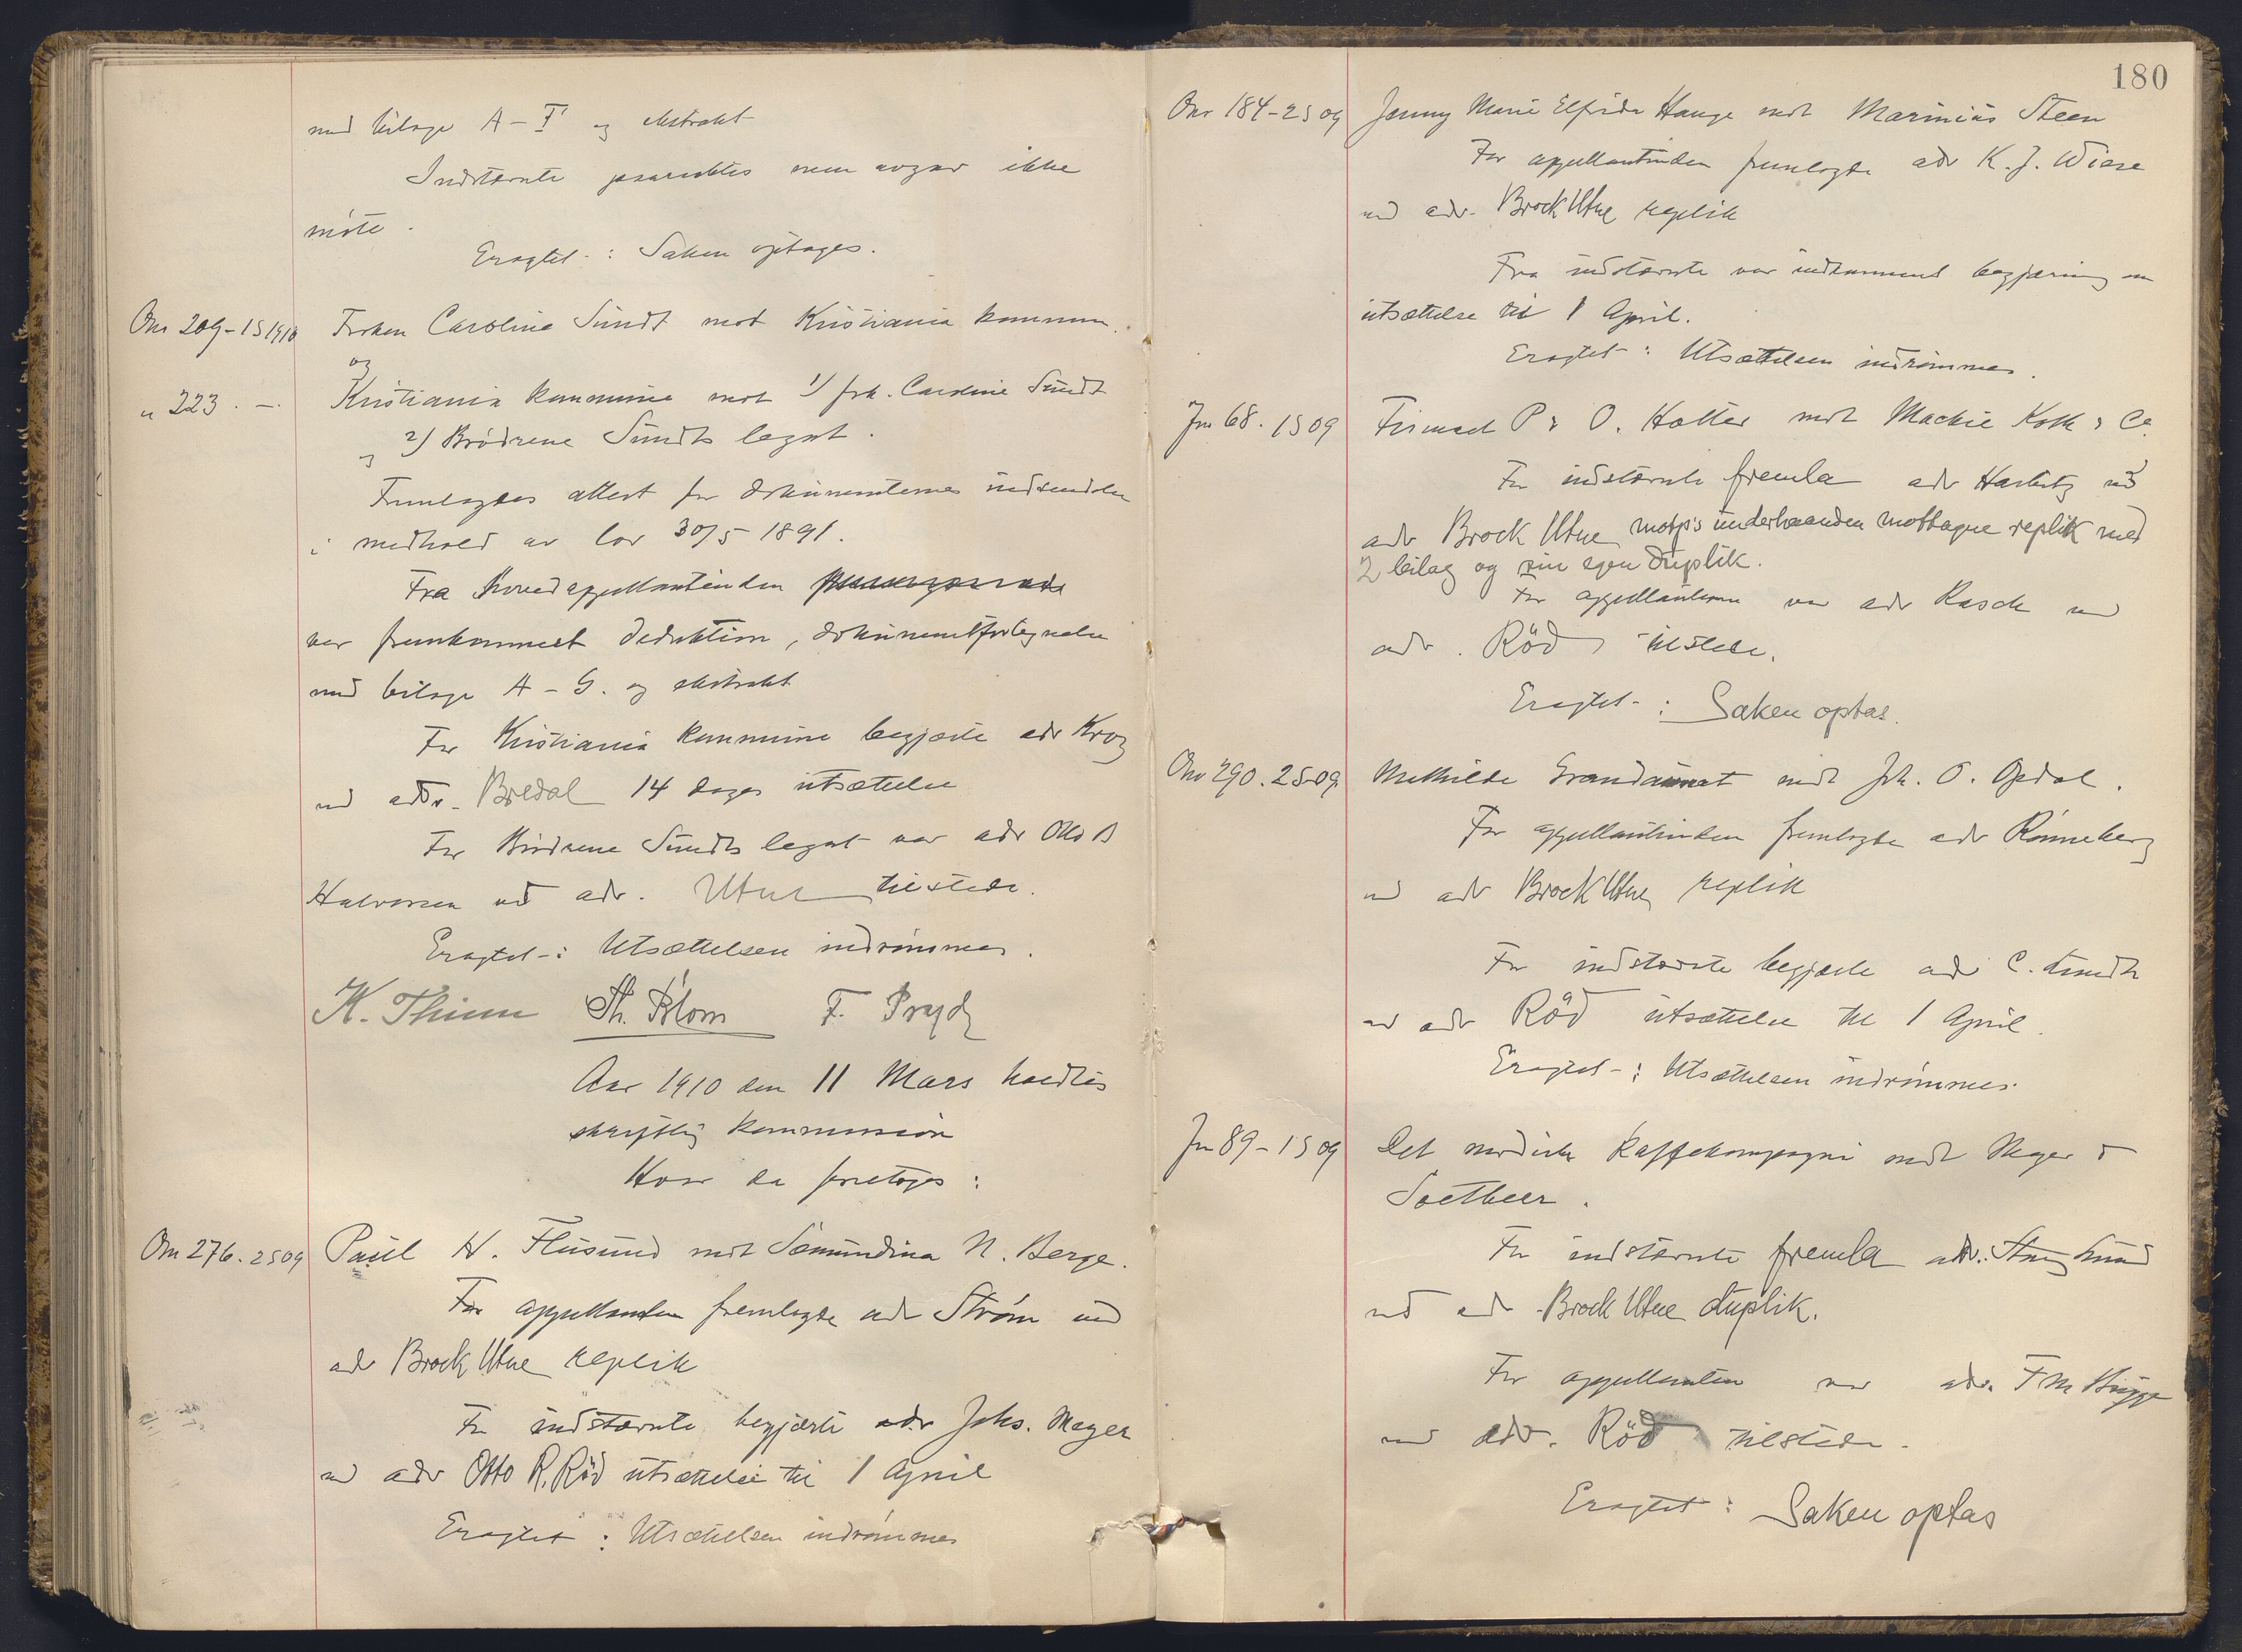 med bilage A – F og ekstrakt
Indstævnte paaraabtes men avgav ikke
møte.
Eragtet: Saken optages.
Onr 209-1S 1910 Frøken Caroline Sundt mot Kristiania kommune.
og
" 223. — Kristiania kommune mot 1/ frk. Caroline Sundt
og 2) Brødrene Sundts legat.
Fremlagdes attest for dokumenternes indsendelse
i medhold av lov 30/5 1891.
Fra hovedappellantinden
var fremkommet deduktion, dokumentfortegnelse
med bilage A – G. og ekstrakt
For Kristiania kommune begjærte adv Krog
ved adv. Bredal 14 dages utsættelse
For Brødrene Sundts legat var adv Otto B
Halvorsen ved adv. Utne tilstede.
Eragtet: Utsættelsen indrømmes.
K. Thinn Th. Blom F. Prydz
Aar 1910 den 11 Mars holdtes
skriftlig kommission
Hvor da foretoges:
Onr 276. 2S09 Paul H. Flusund mot Samundina N. Berge.
For appellanten fremlagde adv Strøm ved
adv Brock Utne replik
For indstævnte begjærte adv Johs. Meyer
ved adv Otto R. Röd utsættelse til 1 April
Eragtet: Utsættelsen indrømmes
180
Onr 184-2S09 Jenny Marie Elfrida Hauge mot Marinius Steen
For appellantinden fremlagde adv K. J. Wiese
ved adv. Brock Utne replik
Fra indstævnte var indkommet begjæring om
utsættelse til 1 April.
Eragtet: Utsættelsen indrømmes.
Jnr 68. 1S09 Firmaet P & O. Holter mot Mackie Koth & Co.
For indstævnte fremla adv Harbitz ved
adv Brock Utne motp's underhaanden mottagne replik med
2 bilag og sin egen duplik.
For appellanterne var adv Rasch ved
adv. Röd tilstede.
Eragtet: Saken optas.
Onr 290. 2S-09. Mathilde Grandaunet mot Joh. O. Opdal.
For appellantinden fremlagde adv Rønneberg
ved adv Brock Utne replik
For indstævnte begjærte adv C. Lundh
ved adv Röd utsættelse til 1 April.
Eragtet: Utsættelsen indrømmes.
Jnr 89-1S09 Det nordiske Kaffekompagni mot Meyer &
Soetbeer.
For indstævnte fremla adv. Stang Lund
ved adv Brock Utne duplik.
For appellanten var adv. F M Bugge
ved adv. Röd tilstede.
Eragtet: Saken optas